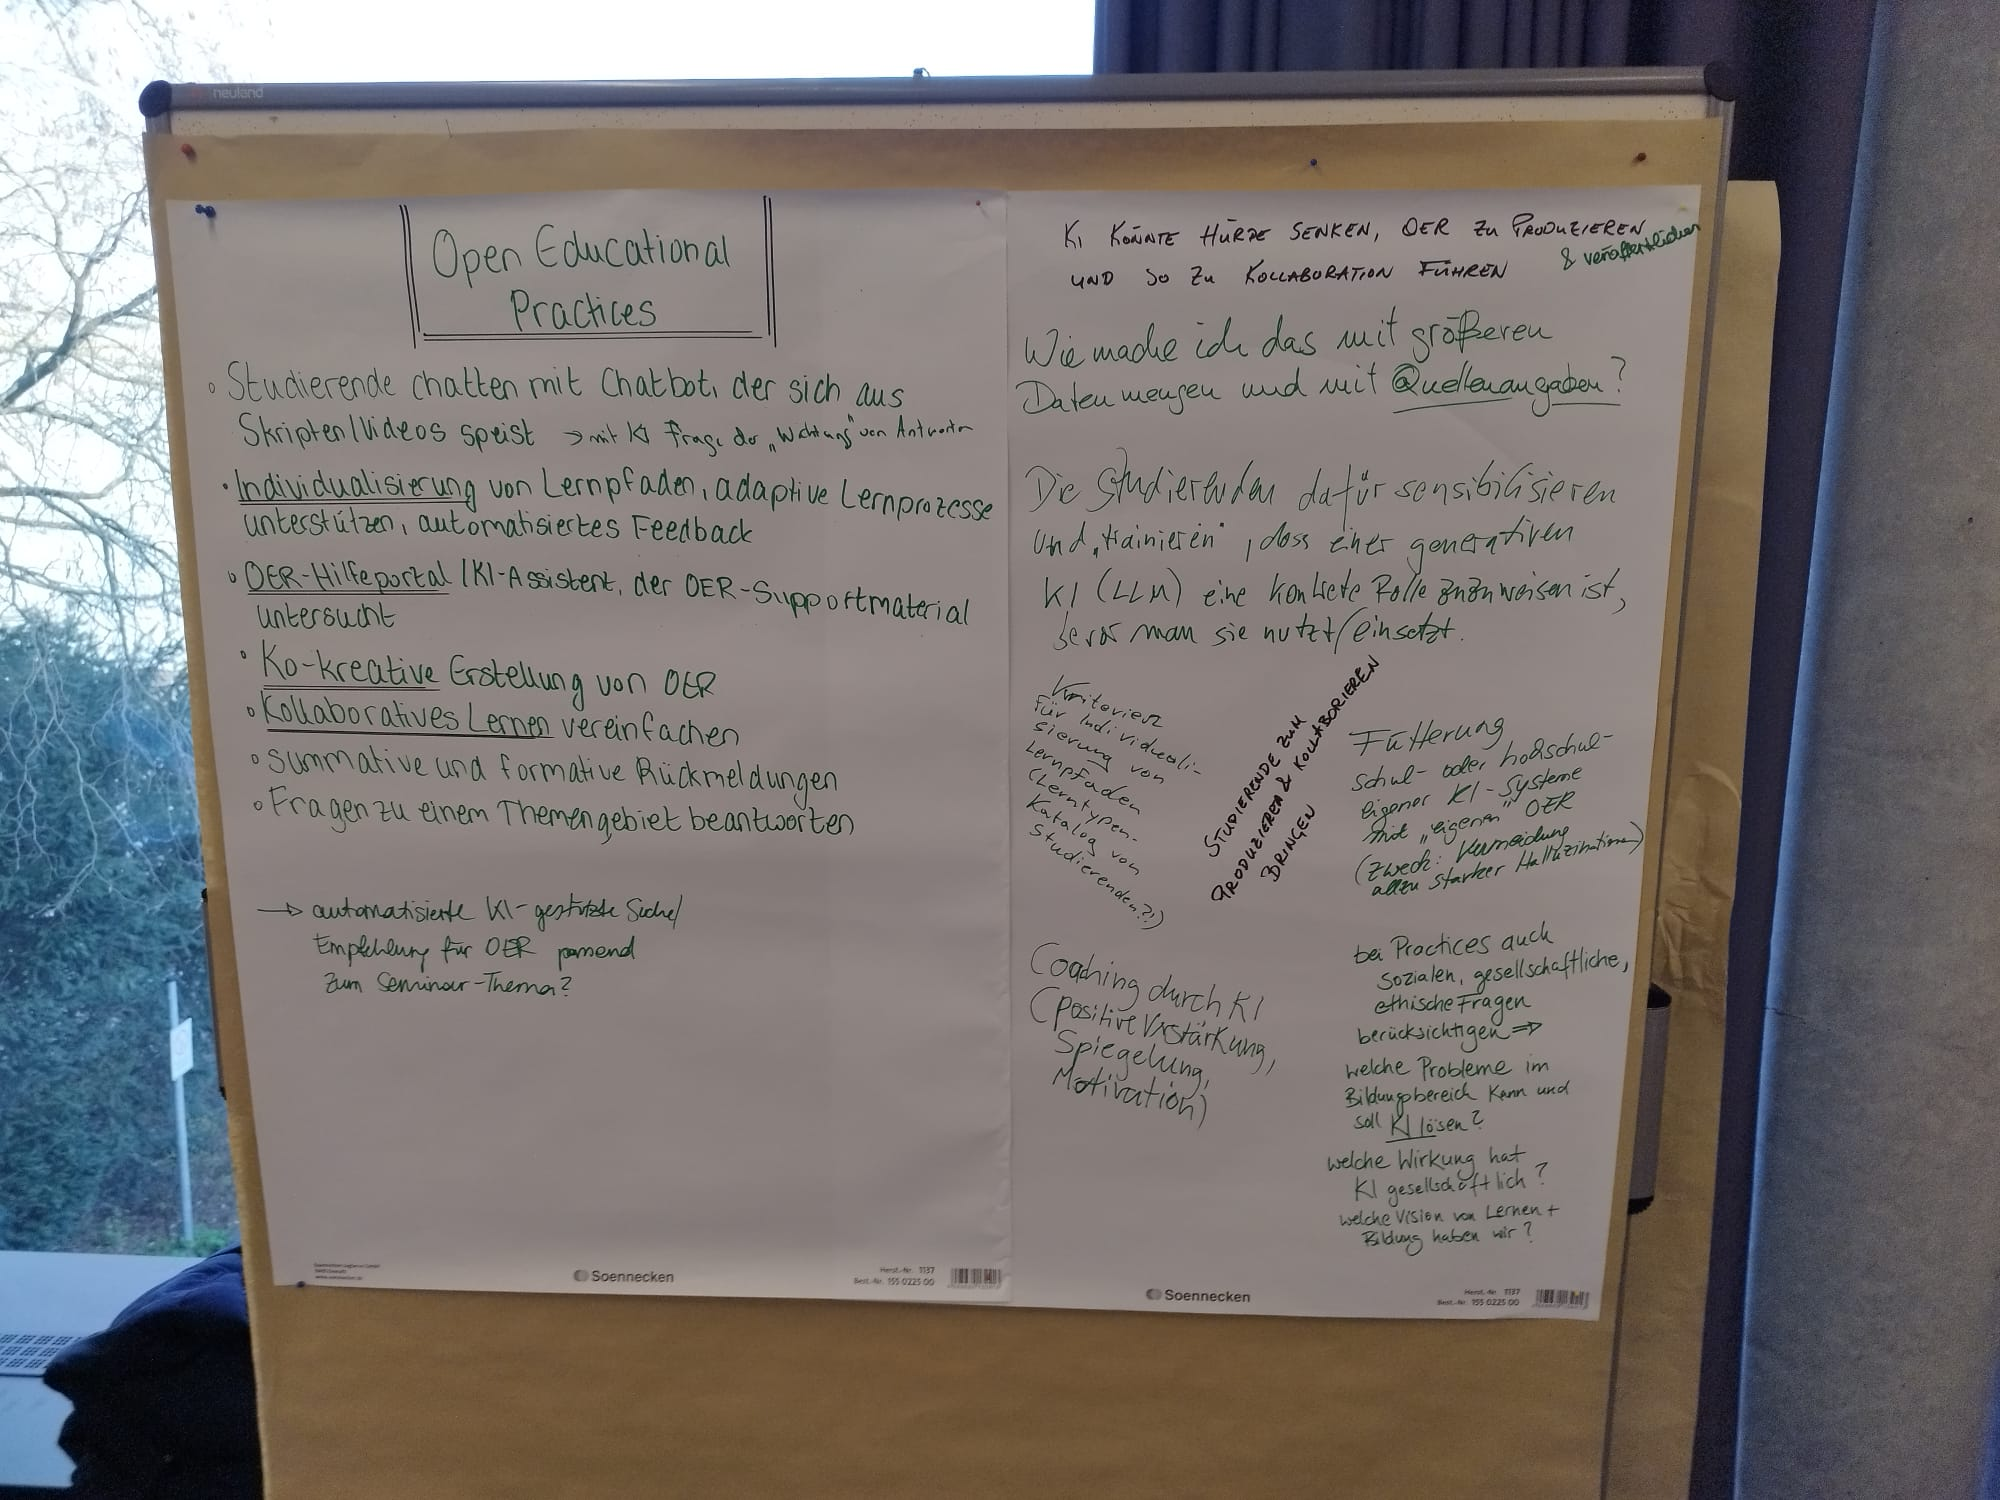 neuland
Open Educational
Practices
Studierende chatten mit Chatbot, der sich aus
Skripten/Videos speist → mit KI Frage der „Wichtung" von Antworten
Individualisierung von Lernpfaden, adaptive Lernprozesse
unterstützen, automatisiertes Feedback
OER-Hilfeportal/KI-Assistent, der OER-Supportmaterial
untersucht
Ko-kreative Erstellung von OER
Kollaboratives Lernen vereinfachen
Summative und formative Rückmeldungen
Fragen zu einem Themengebiet beantworten
→ automatisierte KI-gestützte Suche/
Empfehlung für OER passend
zum Seminar-Thema?
Soennecken
Herst.-Nr. 1137
Best.-Nr. 155 0225 00
KI KÖNNTE HÜRDE SENKEN, OER ZU PRODUZIEREN
& veröffentlichen
UND SO ZU KOLLABORATION FÜHREN
Wie mache ich das mit größeren
Datenmengen und mit Quellenangaben?
Die Studierenden dafür sensibilisieren
und „trainieren", dass einer generativen
KI (LLM) eine konkrete Rolle zuzuweisen ist,
bevor man sie nutzt/einsetzt.
Kriterien
für Individuali-
sierung von
Lernpfaden
(Lerntypen-
Katalog von
Studierenden?!)
STUDIERENDE ZUM
PRODUZIEREN & KOLLABORIEREN
BRINGEN
Fütterung
schul- oder hochschul-
eigener KI-Systeme
mit „eigenen" OER
(Zweck: Vermeidung
allzu starker Halluzinationen)
Coaching durch KI
(positive Verstärkung,
Spiegelung,
Motivation)
bei Practices auch
sozialen, gesellschaftliche,
ethische Fragen
berücksichtigen ⇒
welche Probleme im
Bildungsbereich kann und
soll KI lösen?
welche Wirkung hat
KI gesellschaftlich?
welche Vision von Lernen +
Bildung haben wir?
Soennecken
Herst.-Nr. 1137
Best.-Nr. 155 0225 00